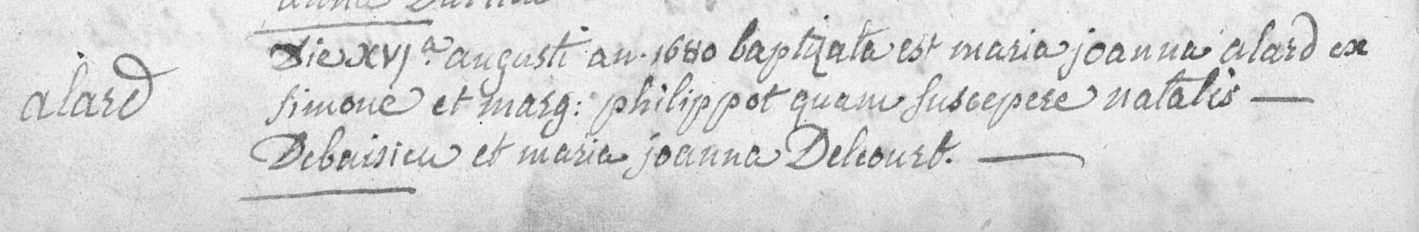 alard
Die XVJ.ᵃ augusti an. 1680 baptizata est maria joanna alard ex
simone et marg: philippot quam suscepere natalis —
Debaisieu et maria joanna Delcourt. —